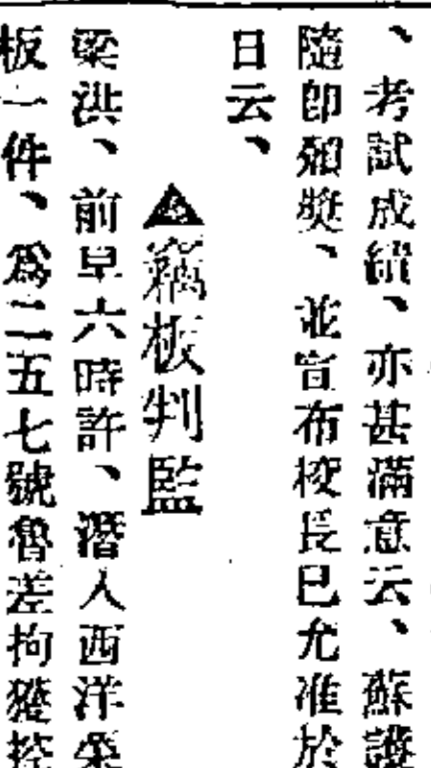 、考試成績、亦甚滿意云、蘇護
隨即頒獎、並宣布校長已允准於
日云、
▲竊板判監
梁洪、前早六時許、潛入西洋
板一件、爲二五七號魯差拘獲控